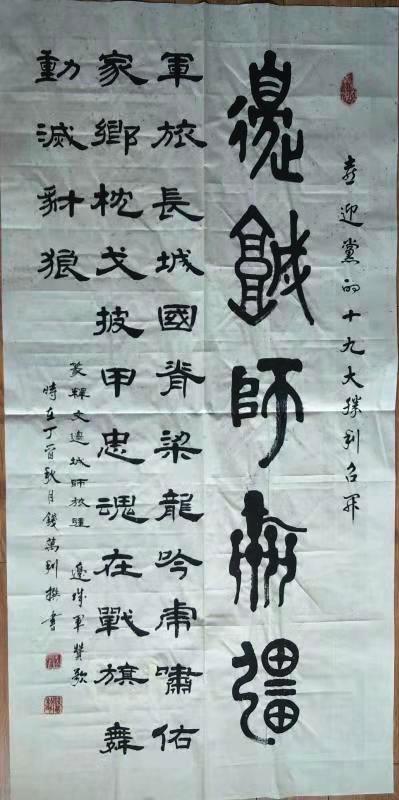 喜迎黨的十九大勝利召开
邊城師旅疆
軍旅長城國脊梁龍吟虎嘯佑
家鄉枕戈披甲忠魂在戰旗舞
動滅豺狼
篆釋文邊城師旅疆 邊城軍贊歌
時在丁酉秋月錢萬撰書